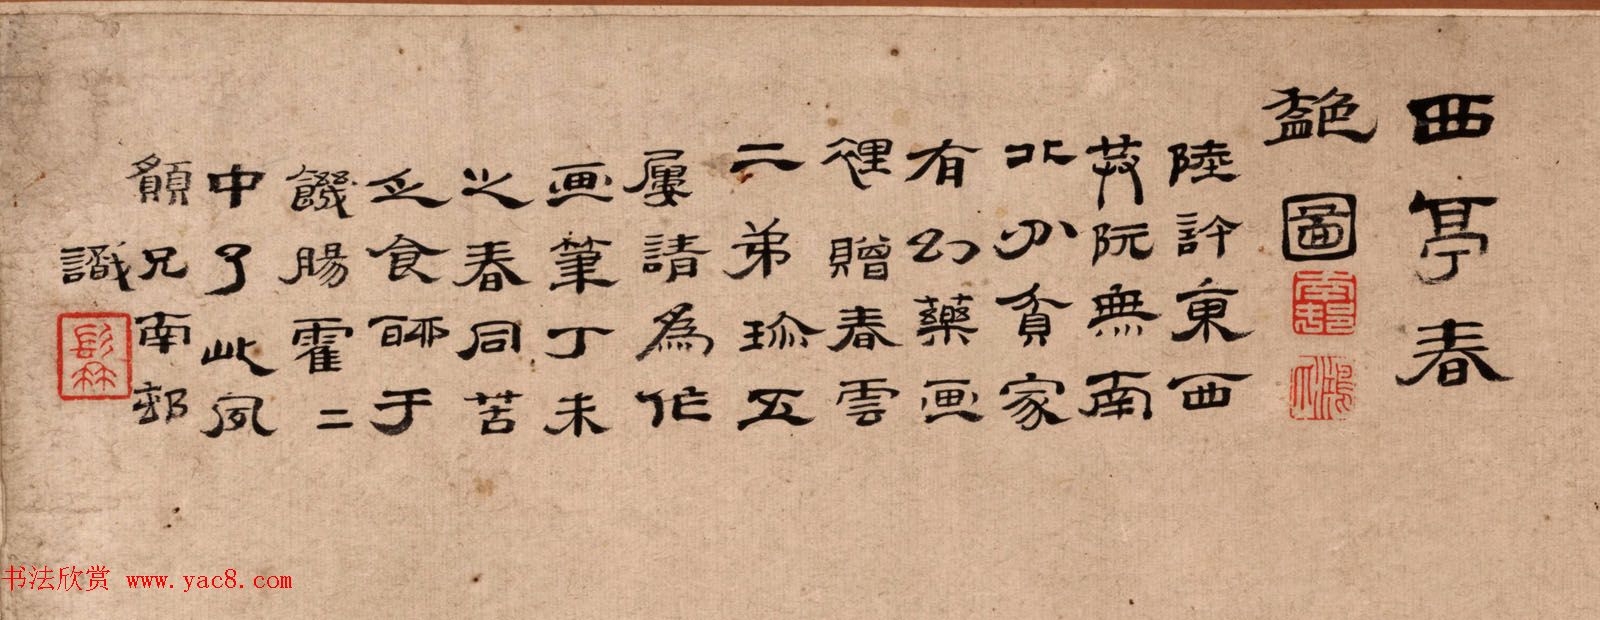 西亭春
艷圖
陸許東西
技阮無南
北分貧家
有幻藥画
裡贈春雲
二弟珎五
屢請為作
画筆丁未
之春同苦
乏食師于
饑腸霍二
中了此夙
願兄南邨
識
书法欣赏 www.yac8.com